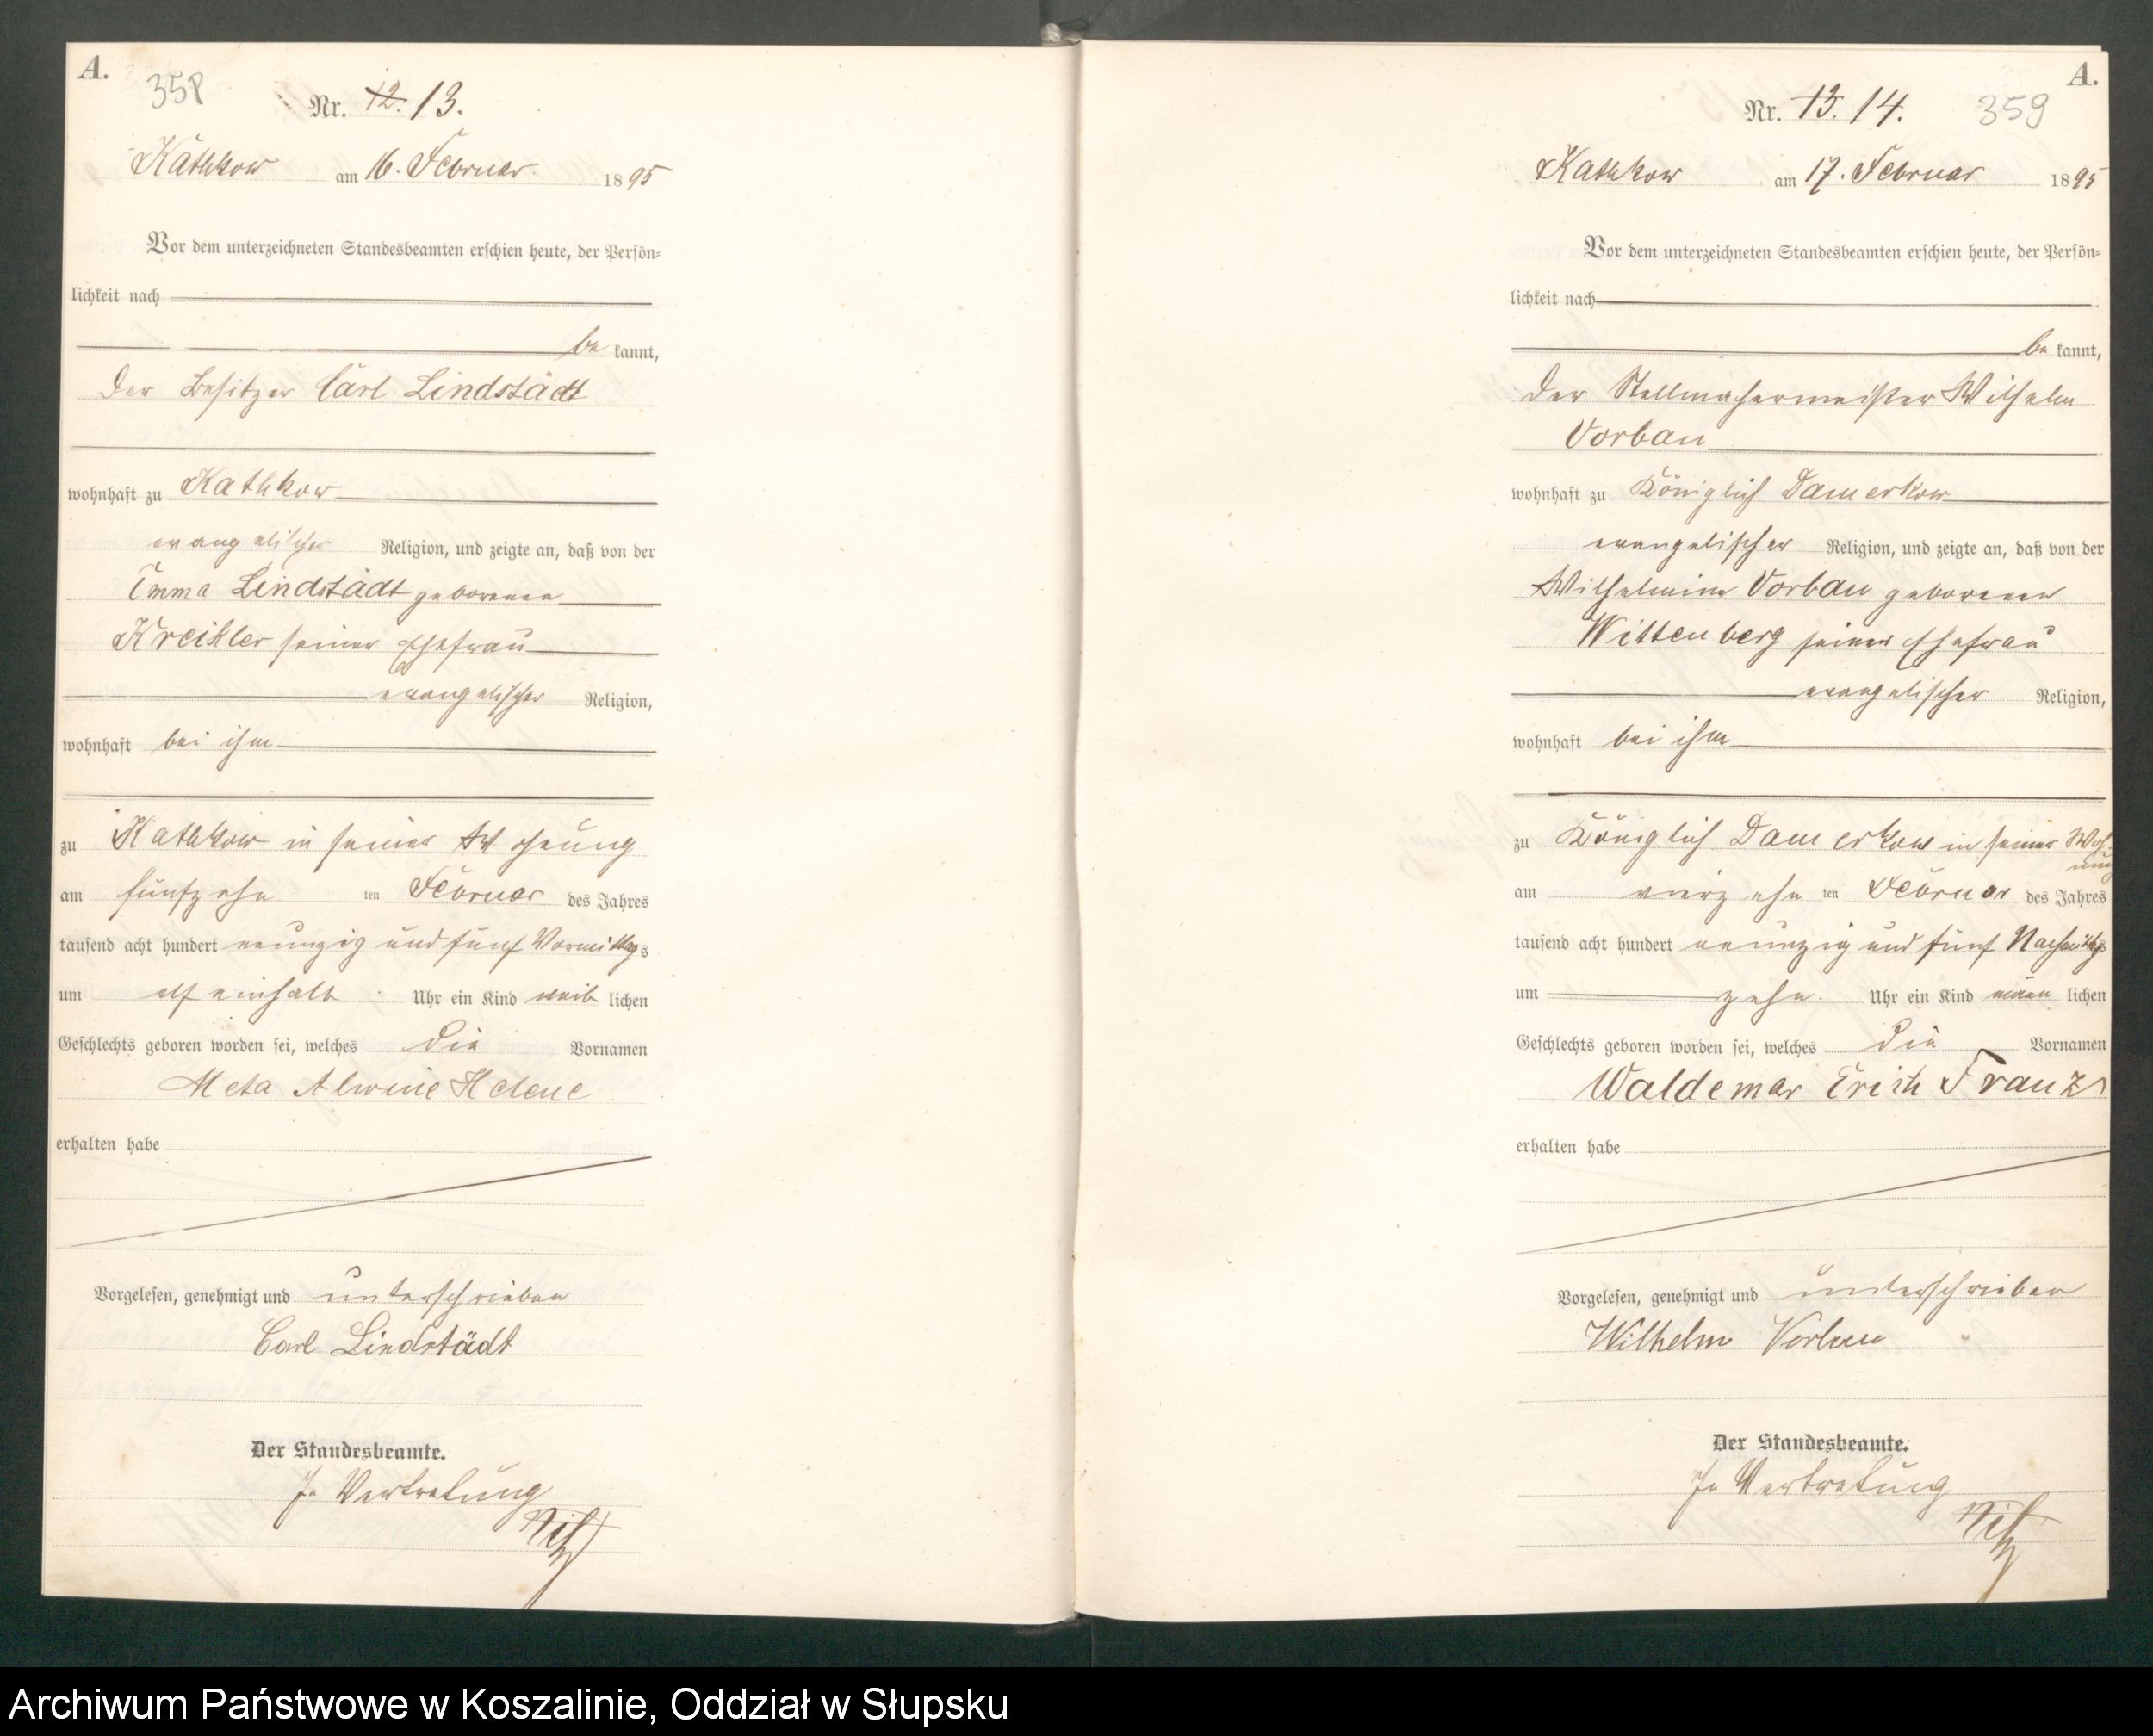 A.
358
Nr. 12. 13.
Kathkow am 16. Februar 1895
Vor dem unterzeichneten Standesbeamten erschien heute, der Persön=
lichkeit nach
be kannt,
der Besitzer Carl Lindstädt
wohnhaft zu Kathkow
evangelischer Religion, und zeigte an, daß von der
Emma Lindstädt geborenen
Kreikler seiner Ehefrau
evangelischer Religion,
wohnhaft bei ihm
zu Kathkow in seiner Wohnung
am fünfzehn ten Februar des Jahres
tausend acht hundert neunzig und fünf Vormittags
um elf einhalb Uhr ein Kind weib lichen
Geschlechts geboren worden sei, welches die Vornamen
Meta Alwine Helene
erhalten habe
Vorgelesen, genehmigt und unterschrieben
Carl Lindstädt
Der Standesbeamte.
In Vertretung
A.
Nr. 13. 14.
359
Kathkow am 17. Februar 1895
Vor dem unterzeichneten Standesbeamten erschien heute, der Persön=
lichkeit nach
be kannt,
der Stellmachermeister Wilhelm
Vorbau
wohnhaft zu Königlich Damerkow
evangelischer Religion, und zeigte an, daß von der
Wilhelmine Vorbau geborenen
Wittenberg seiner Ehefrau
evangelischer Religion,
wohnhaft bei ihm
zu Königlich Damerkow in seiner Woh-
nung
am vierzehn ten Februar des Jahres
tausend acht hundert neunzig und fünf Nachmittags
um zehn Uhr ein Kind männ lichen
Geschlechts geboren worden sei, welches die Vornamen
Waldemar Erich Franz
erhalten habe
Vorgelesen, genehmigt und unterschrieben
Wilhelm Vorbau
Der Standesbeamte.
In Vertretung
Archiwum Państwowe w Koszalinie, Oddział w Słupsku